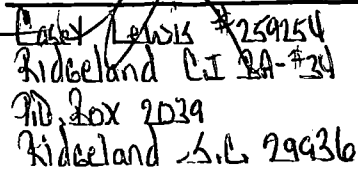 Casey Lewis #259254
Ridgeland C.I BA-#34
P.O. Box 2039
Ridgeland S.C. 29936